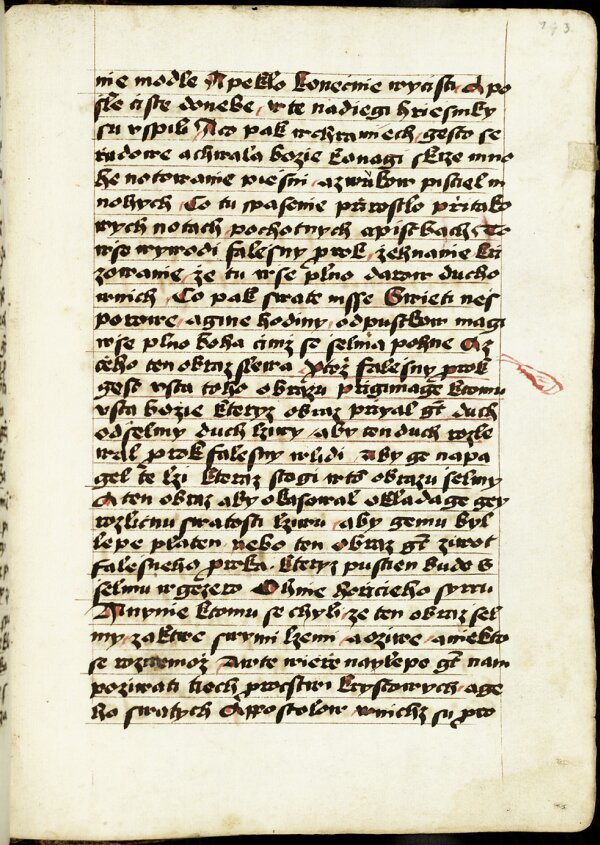 nie modle A peklo konečnie wycisti A po
sle čiste donebe w te nadiegi hriesniky
su vspili Aco pak wchramiech gesto se
radowe achwala bozie konagi skrze mno
he notowanie piesni azwukow pistiel in
nohych Co tu spasenie przirostlo przitako
wych notach pochotnych apistbach To
wse wywodi falesny prok zehnanie krzi
zowanie ze tu wse plno darow ducho
wnich Co pak swate msse Swieti nes
porowe agine hodiny odpustkow magi
wse plno boha cimz se selma pohne Az
čeho ten obraz slewa Ptoz falesny prok
gest vsta toho obrazu prigimage ktomu
vsta bozie kteryz obraz prigal gt duch
odselmy duch lziwy aby ten duch rozle
wal prok falesny wlidi aby ge napa
gel te lzi kteraz stogi wto obrazu selmy
A ten obraz aby okasowal okladage gey
rozlicnu swatosti lziwu aby gemu byl
lepe platen nebo ten obraz gt ziwot
falesneho proka kteryz pustien bude s
selmu wgezero Ohnie horzicieho syrru
A nynie ktomu se chyli ze ten obraz sel
my zaktwe swymi lzemi aoziwe aniekto
se rozmemoz Awte wierze naylepe gt nam
poziwati tiech proestwi krystowych age
ho swatych Appostolow wnichz su pro